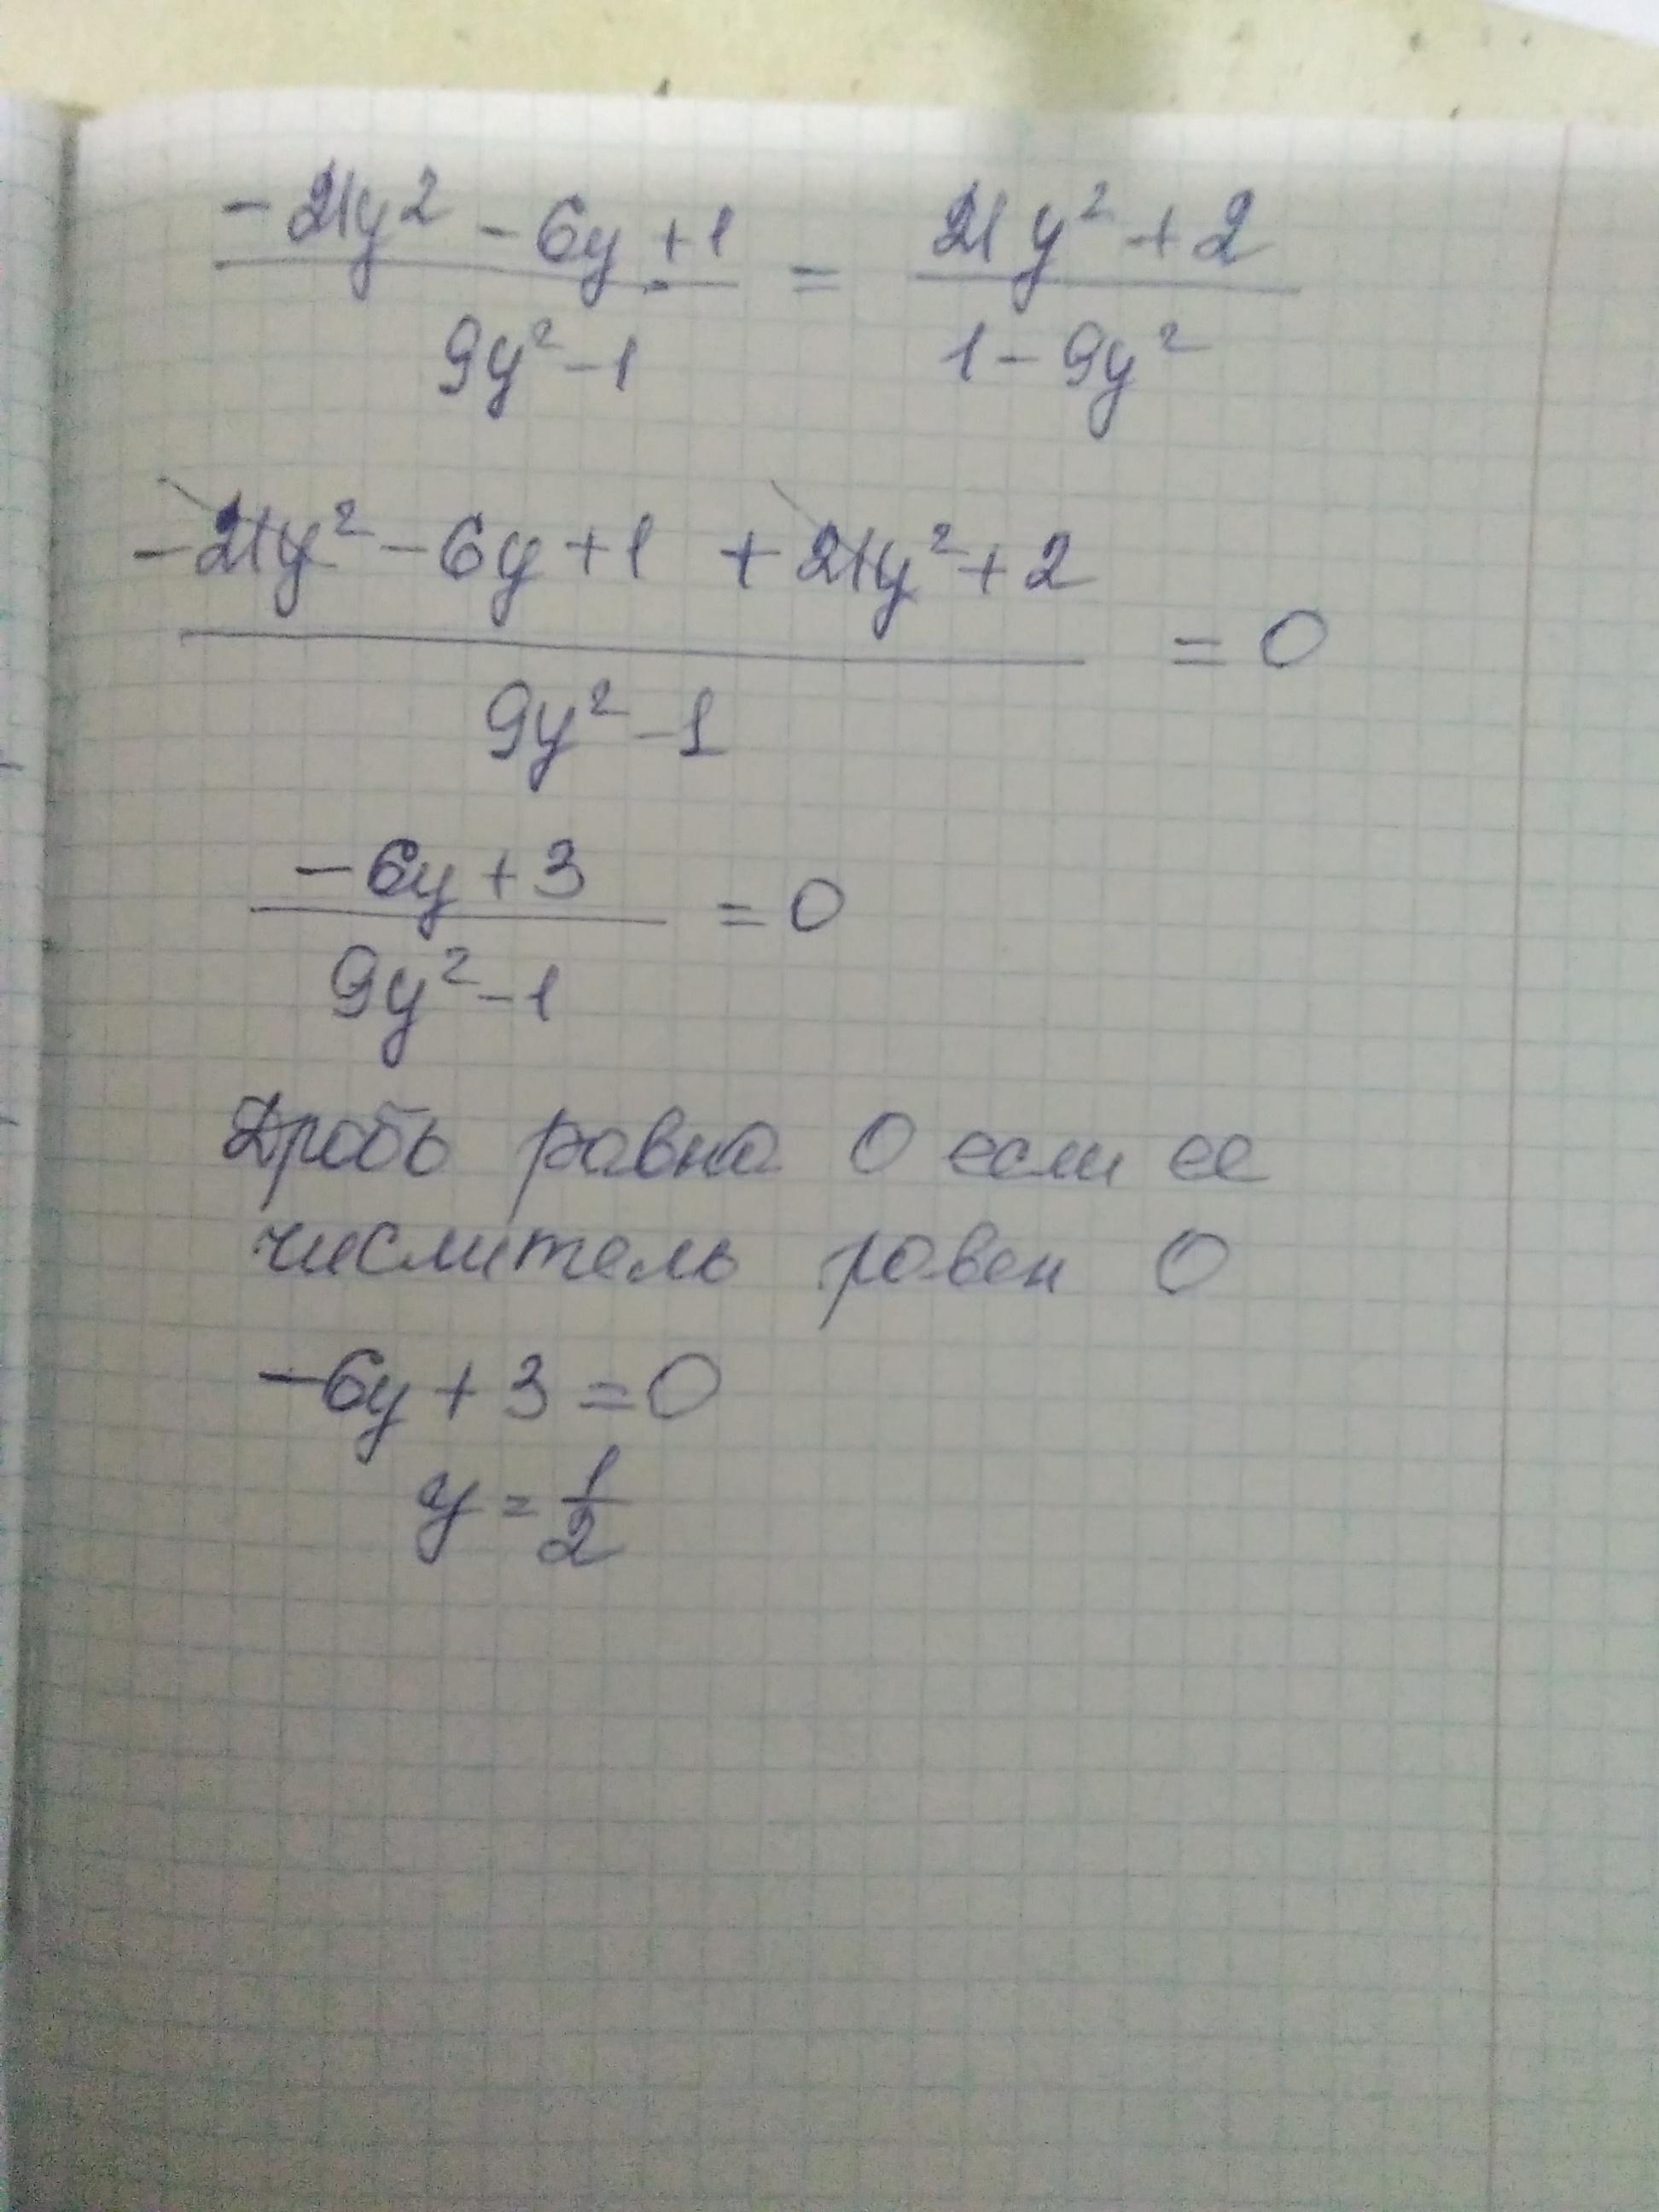 -21y² - 6y + 1 / 9y² - 1 = 21y² + 2 / 1 - 9y²
-21y² - 6y + 1 + 21y² + 2 / 9y² - 1 = 0
-6y + 3 / 9y² - 1 = 0
Дробь равна 0 если ее
числитель равен 0
-6y + 3 = 0
y = 1/2